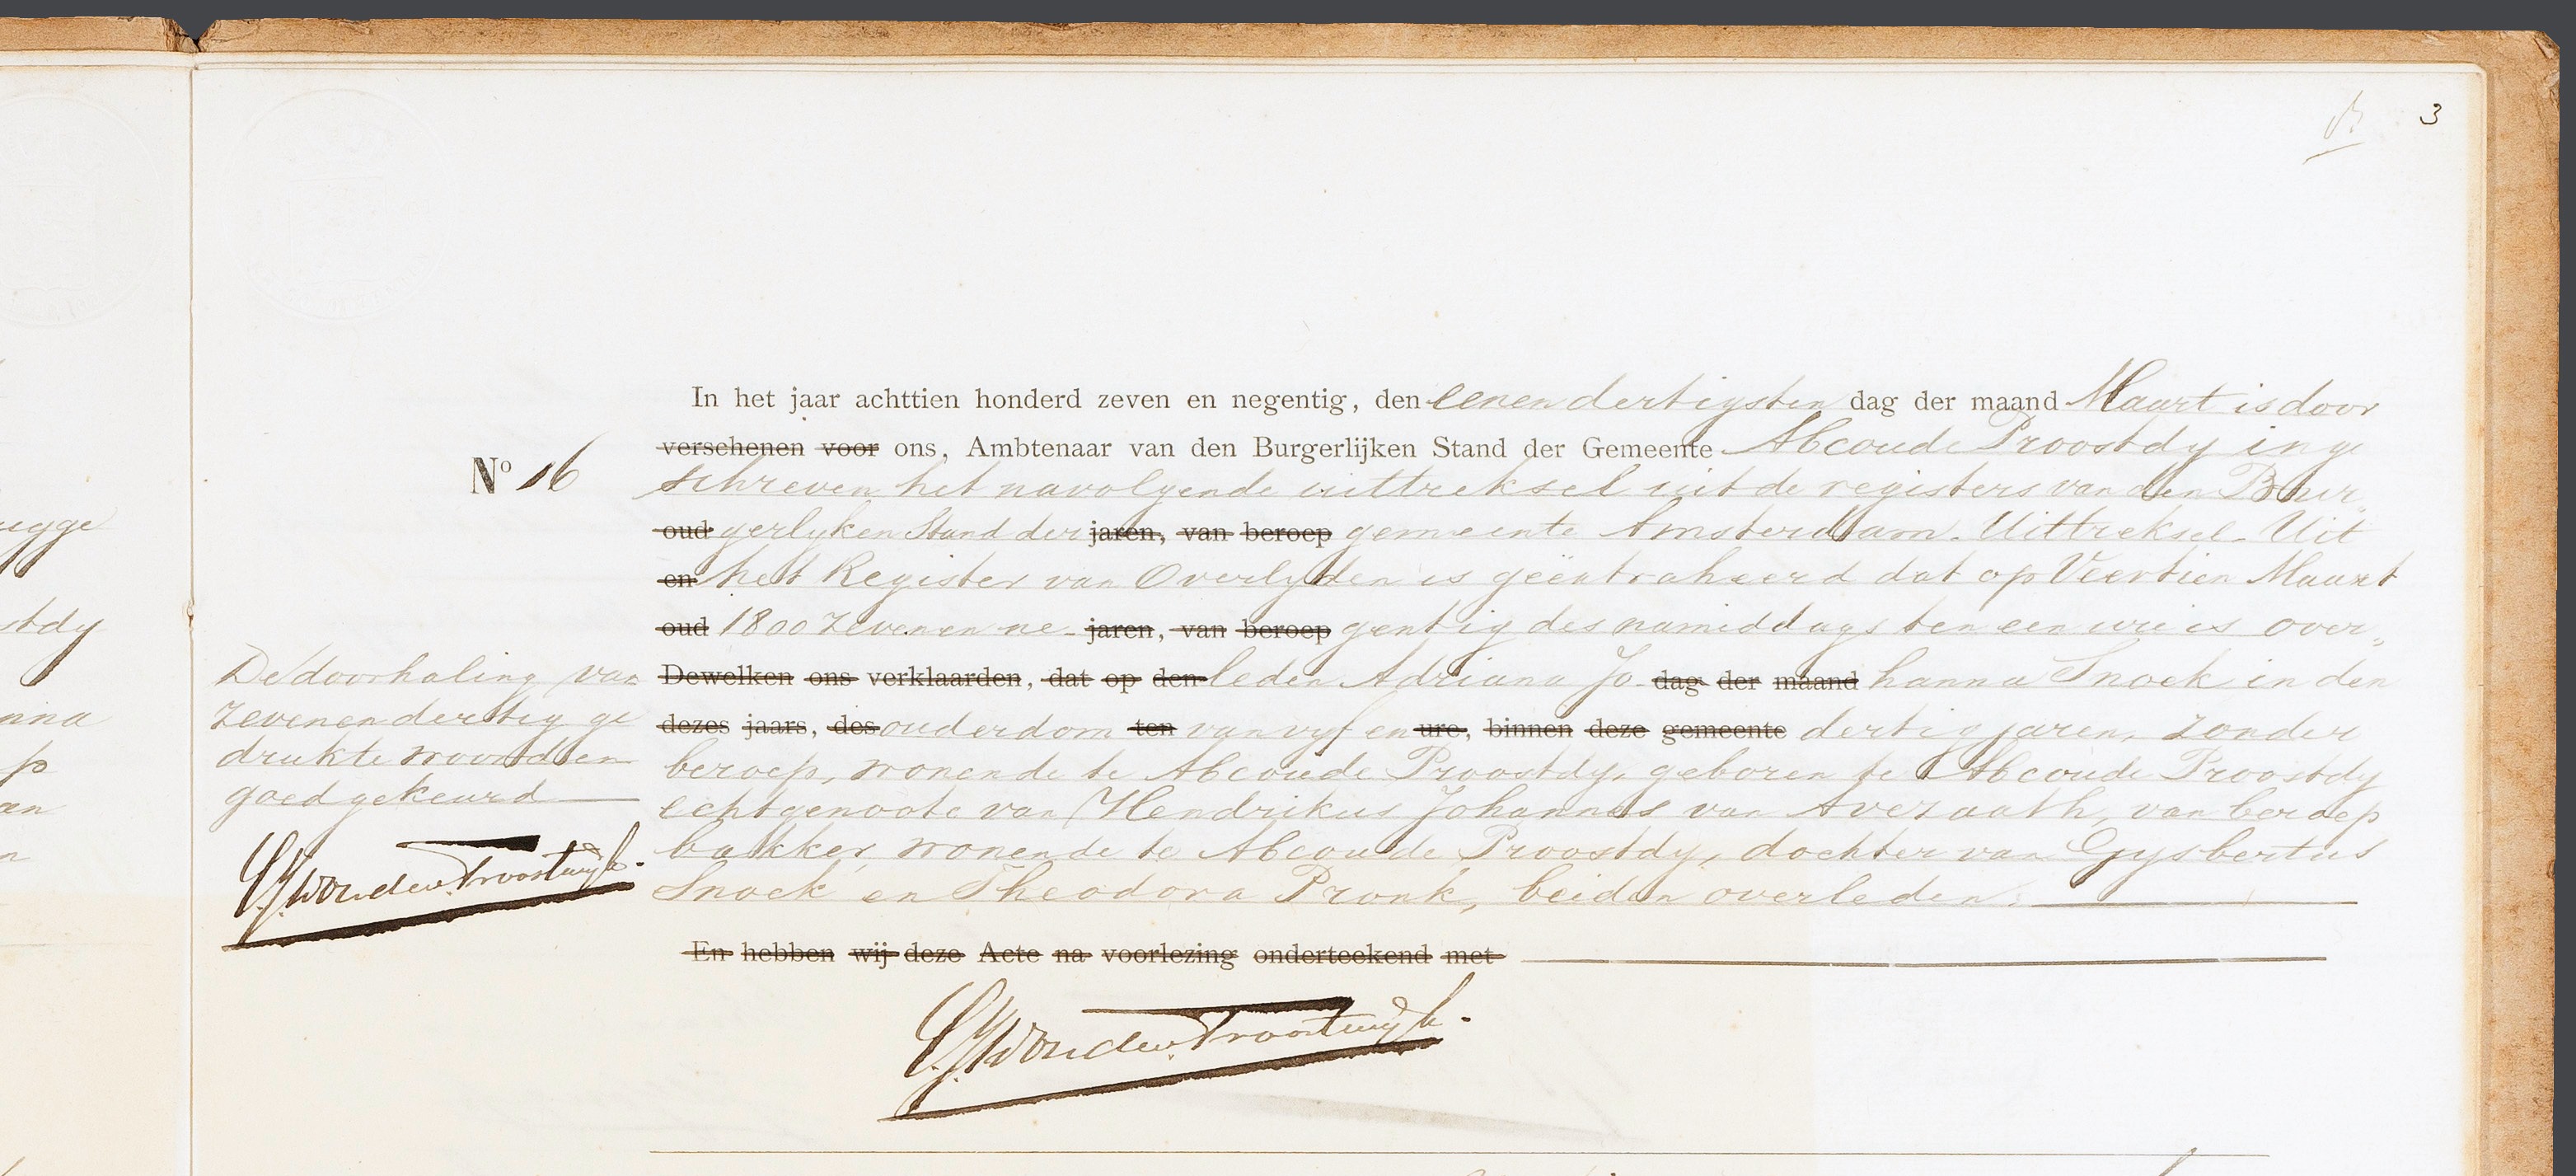 3
In het jaar achttien honderd zeven en negentig, den eenendertigsten dag der maand Maart is door
verschenen voor ons, Ambtenaar van den Burgerlijken Stand der Gemeente Abcoude Proostdy inge
No 16
schreven het navolgende uittreksel uit de registers van den Bur„
oud gerlyken Stand der jaren, van beroep gemeente Amsterdam. Uittreksel. Uit
en het Register van Overlyden is geëxtraheerd dat op Veertien Maart
oud 1800 zevenen ne- jaren, van beroep gentig des namiddags ten een ure is over„
Dewelken ons verklaarden, dat op den leden Adriana Jo- dag der maand hanna Snoek in den
dezes jaars, des ouderdom ten van vyf en ure, binnen deze gemeente dertig jaren, zonder
beroep, wonende te Abcoude Proostdy, geboren te Abcoude Proostdy
echtgenoote van Hendrikus Johannes van Averaath, van beroep
bakker, wonende te Abcoude Proostdy, dochter van Gysbertus
Snoek en Theodora Pronk, beiden overleden.
De doorhaling van
zevenendertig ge
drukte woorden
goedgekeurd
En hebben wij deze Acte na voorlezing onderteekend met
ugge
stdy
nna
p
an
n